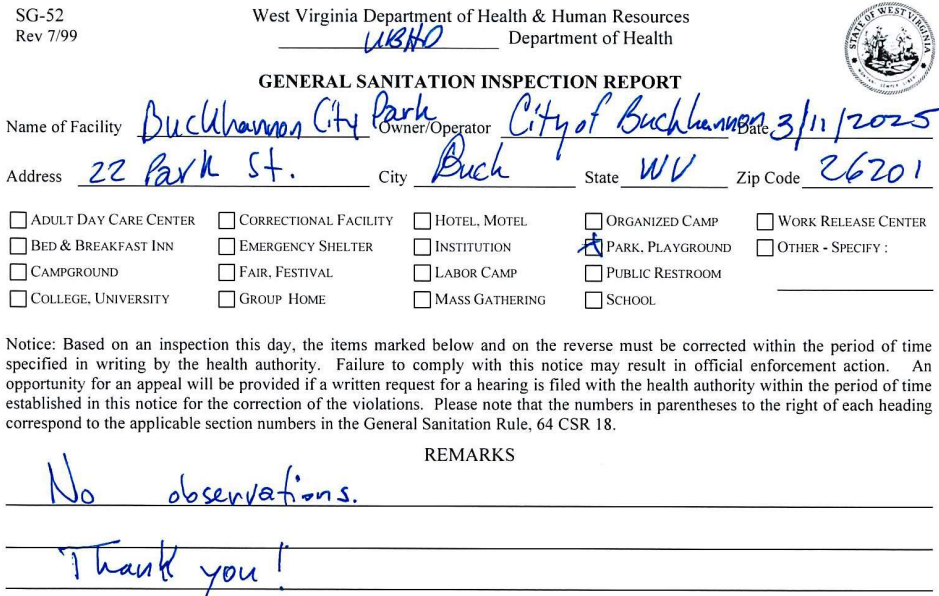 SG-52
Rev 7/99
West Virginia Department of Health & Human Resources
UBHD Department of Health
STATE OF WEST VIRGINIA
GENERAL SANITATION INSPECTION REPORT
Name of Facility Buckhannon City Park Owner/Operator City of Buckhannon Date 3/11/2025
Address 22 Park St. City Buck State WV Zip Code 26201
ADULT DAY CARE CENTER CORRECTIONAL FACILITY HOTEL, MOTEL ORGANIZED CAMP WORK RELEASE CENTER
BED & BREAKFAST INN EMERGENCY SHELTER INSTITUTION PARK, PLAYGROUND OTHER - SPECIFY :
CAMPGROUND FAIR, FESTIVAL LABOR CAMP PUBLIC RESTROOM
COLLEGE, UNIVERSITY GROUP HOME MASS GATHERING SCHOOL
Notice: Based on an inspection this day, the items marked below and on the reverse must be corrected within the period of time
specified in writing by the health authority. Failure to comply with this notice may result in official enforcement action. An
opportunity for an appeal will be provided if a written request for a hearing is filed with the health authority within the period of time
established in this notice for the correction of the violations. Please note that the numbers in parentheses to the right of each heading
correspond to the applicable section numbers in the General Sanitation Rule, 64 CSR 18.
REMARKS
No observations.
Thank you!